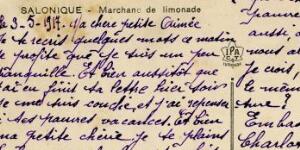 SALONIQUE - Marchand de limonade
Le 3-5-1917. Ma chère petite Aimée
Je t'écris quelques mots ce matin
je profite que je suis un peu
tranquille. Et bien aussitôt que
j'ai eu fini ta lettre hier soir
je me suis couché, et j'ai repensé
à tes pauvres vacances. Et bien
ma petite chérie je te plains
IPA
aussi,
je crois
le même
Embas
Charlo